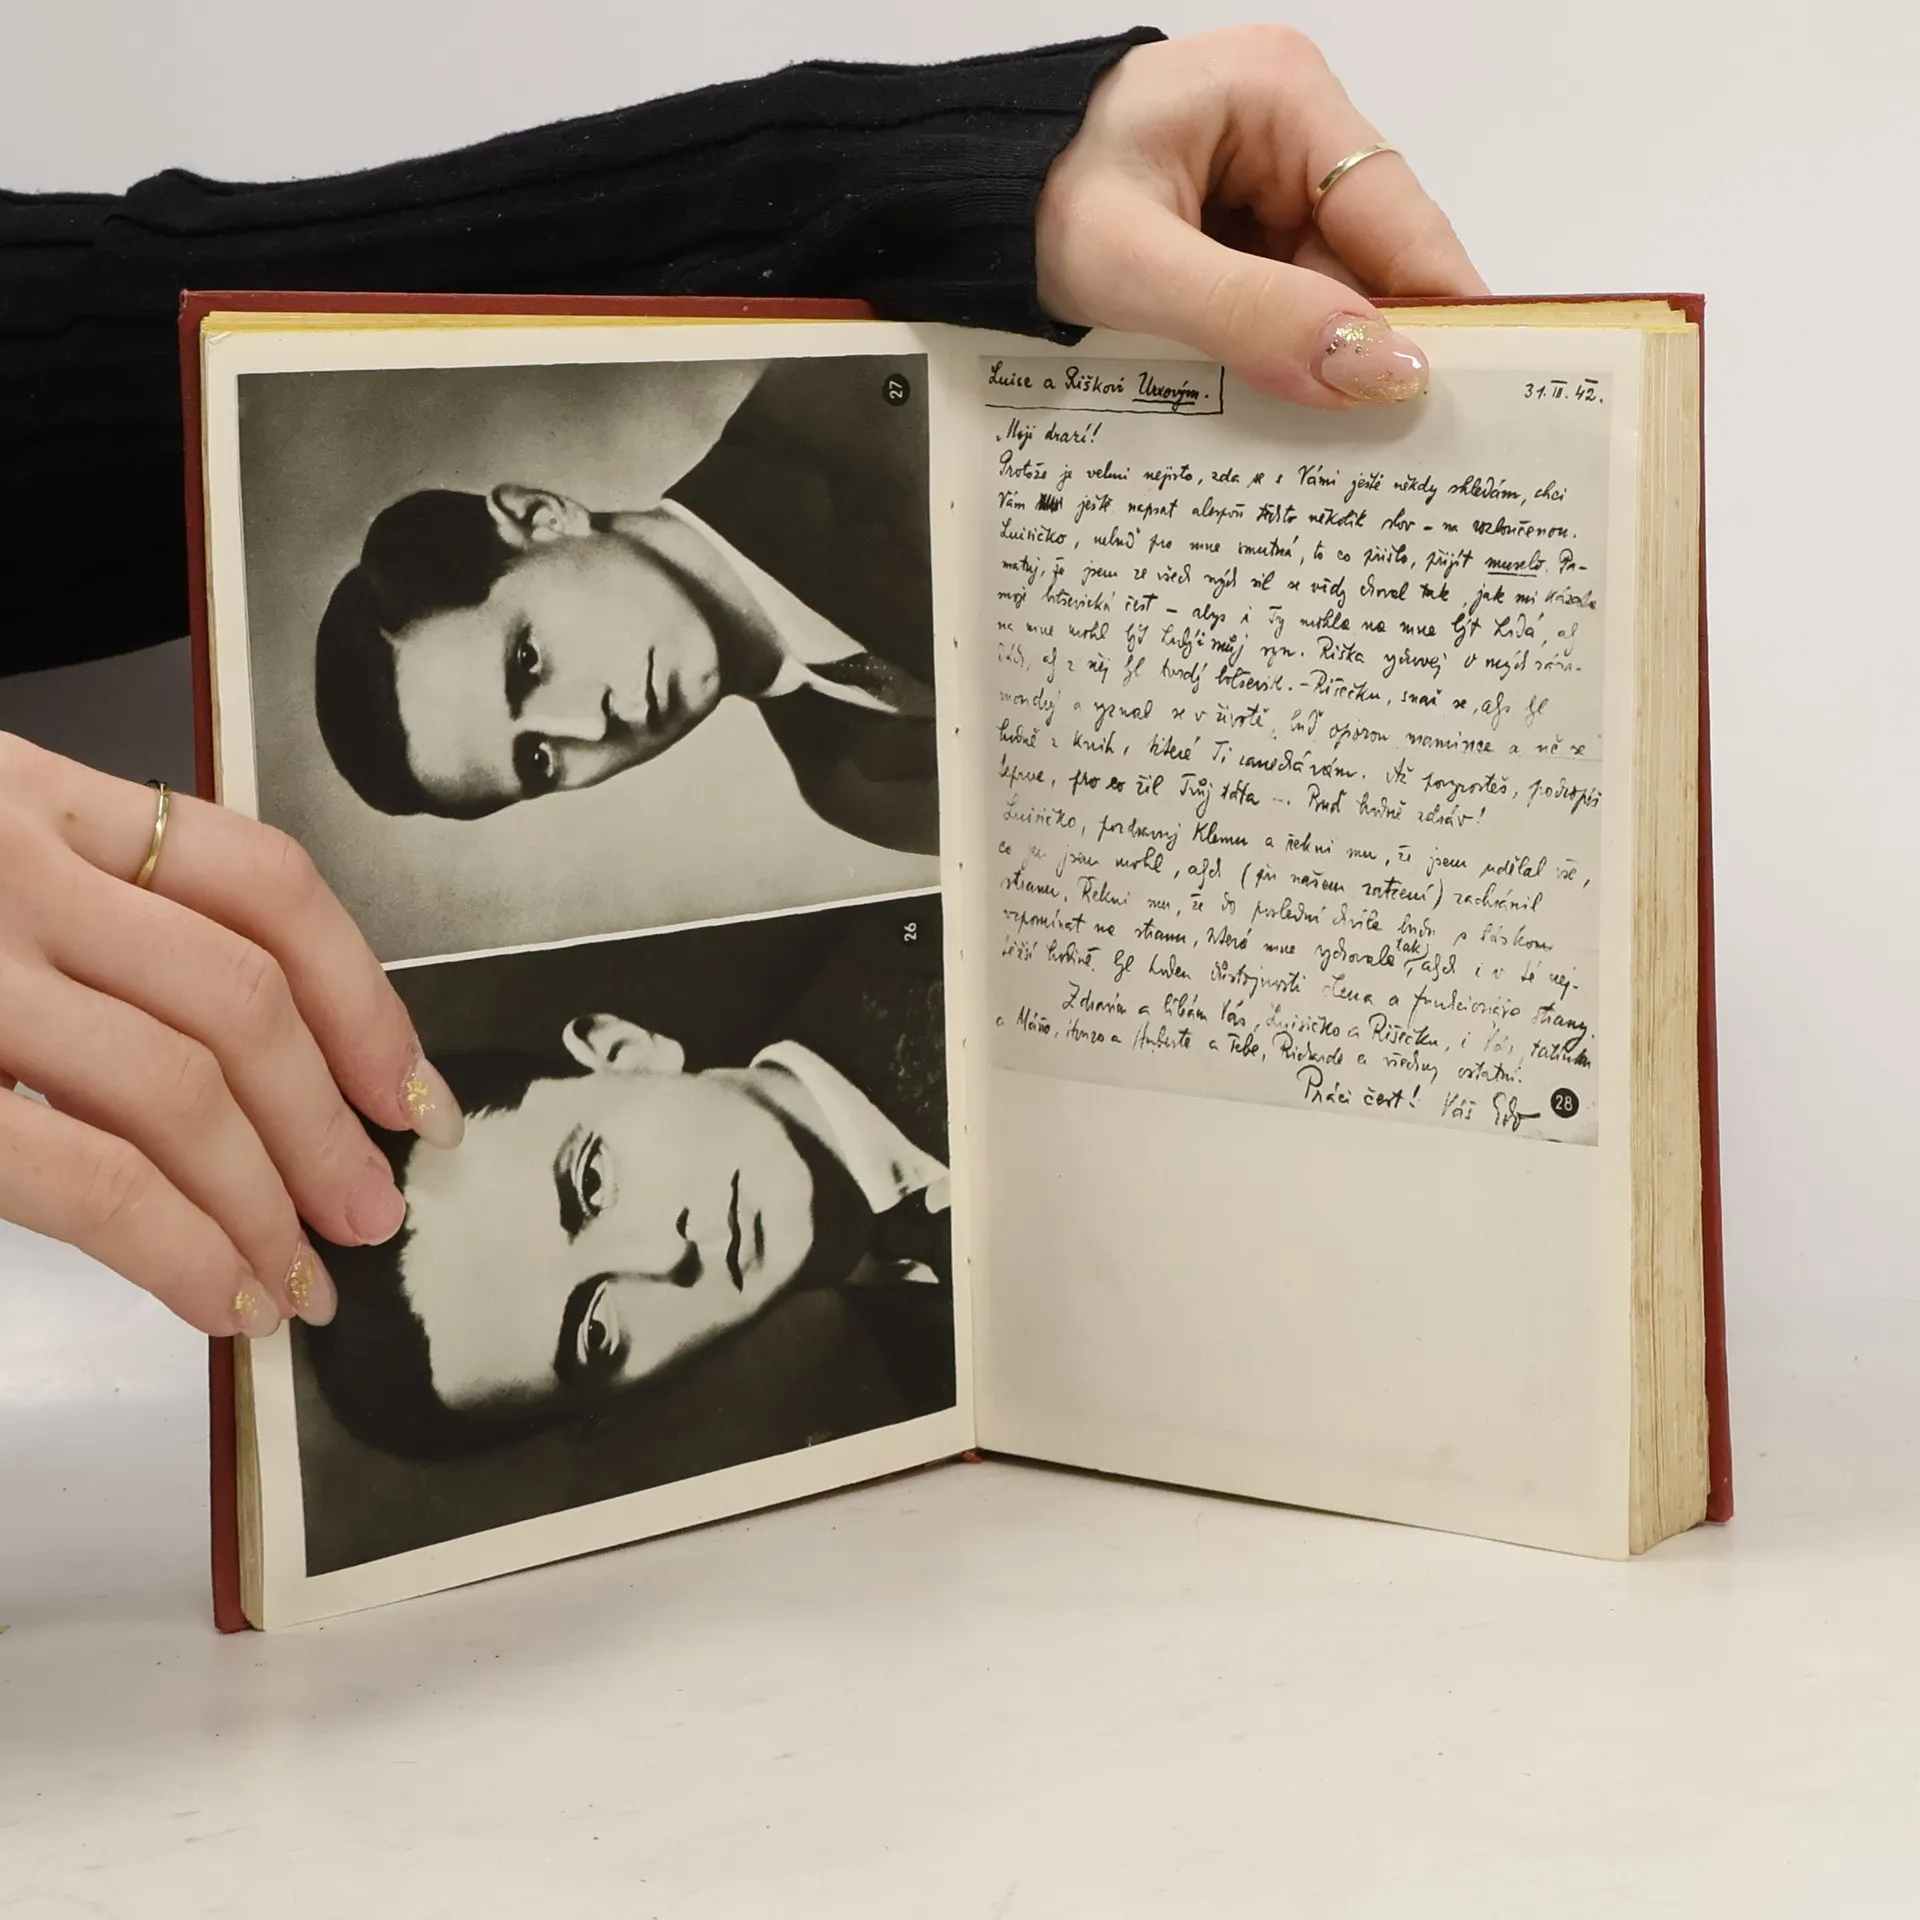 27
26
Luice a Riškovi Urxovým.
31.III.42.
Moji drazí!
Protože je velmi nejisto, zda se s Vámi ještě někdy shledám, chci
Vám ještě napsat alespoň těchto několik slov – na rozloučenou.
Luisičko, nebuď pro mne smutná, to co přišlo, přijít muselo. Pa-
matuj, že jsem ze všech mých sil se vždy choval tak, jak mi kázala
moje bolševická čest – abys i Ty mohla na mne být hrdá, aby
na mne mohl být hrdý i můj syn. Riška vychovej v mých zása-
dách, aby z něj byl tvrdý bolševik. – Rišečku, snaž se, abys byl
moudrý a vyznal se v životě, buď oporou mamince a uč se
hodně z knih, které Ti zanechávám. Až povyrosteš, pochopíš
teprve, pro co žil Tvůj táta –. Buď hodně zdráv!
Luisičko, pozdravuj Klema a řekni mu, že jsem udělal vše,
co jen jsem mohl, abych (při našem zatčení) zachránil
stranu. Řekni mu, že do poslední chvíle budu s láskou
vzpomínat na stranu, která mne vychovala tak, abych i v té nej-
těžší hodině byl hoden důstojnosti člena a funkcionáře strany.
Zdravím a líbám Vás, Luisičko a Rišečku, i Vás, tatínku
a Máňo, Honzo a Huberte a Tebe, Richarde a všechny ostatní.
Práci čest! Váš Edo
28